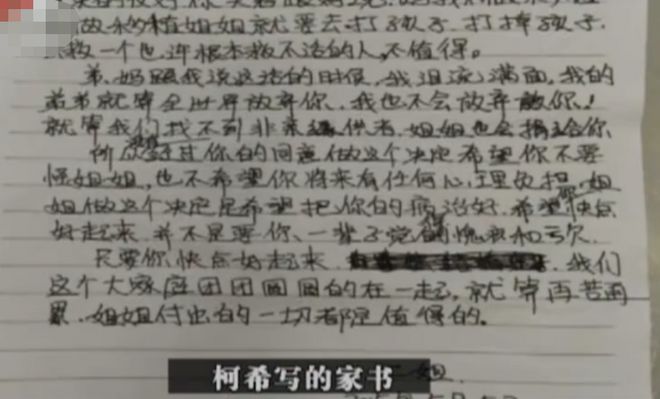 做移植姐姐就要去打孩子.打掉孩子
救一个也许根本救不活的人,不值得。
弟.妈跟我说这话的时候.我泪流满面,我的
弟弟就算全世界放弃你.我也不会放弃你!
就算我们找不到非亲缘供者.姐姐也会捐给你
所没经过你的同意做这个决定希望你不要
怪姐姐,也不希望你将来有任何心理负担.姐
姐做这个决定是希望把你的病治好.希望你快点
好起来.并不是要你、一辈子觉得愧疚和亏欠.
只要你快点好起来.我们
这个大家庭团团圆圆的在一起,就算再苦再
累.姐姐付出的一切都是值得的。
姐.
柯希写的家书